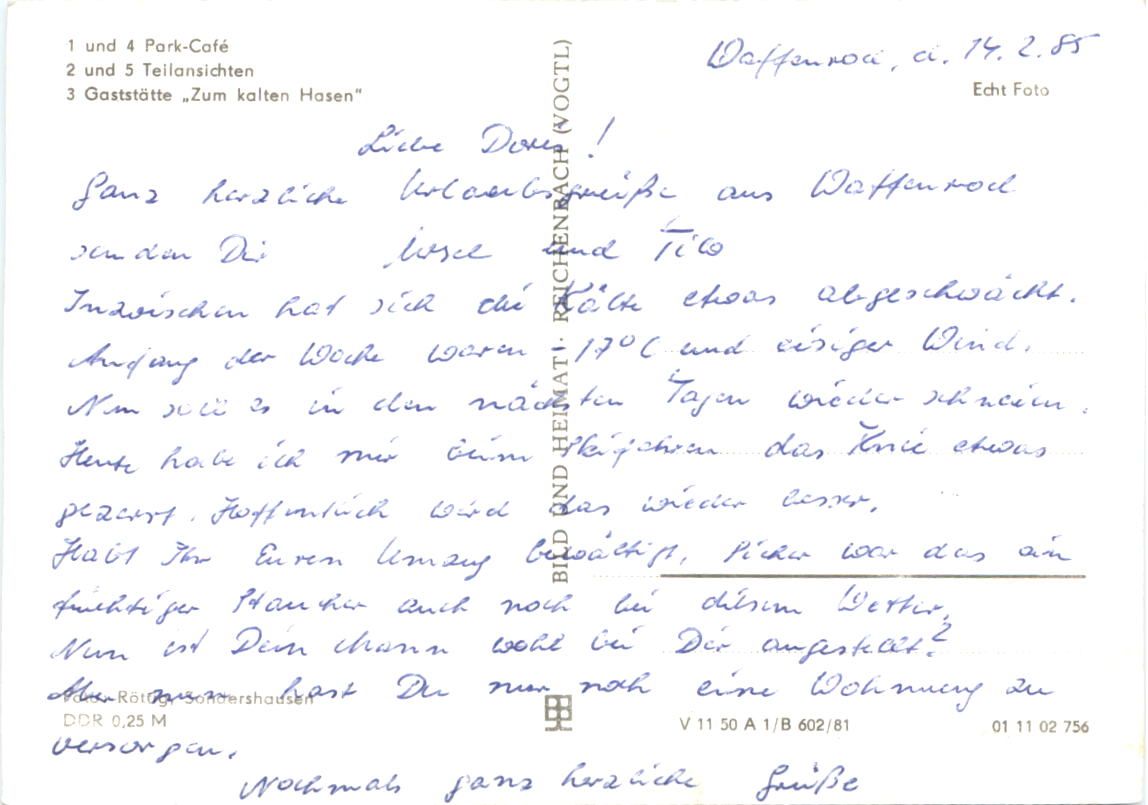 1 und 4 Park-Café
2 und 5 Teilansichten
3 Gaststätte „Zum kalten Hasen“
Waffenrod, d. 14. 2. 85
Echt Foto
Liebe Doris!
Ganz herzliche Urlaubsgrüße aus Waffenrod
senden Dir Ursel und Tilo
Inzwischen hat sich die Kälte etwas abgeschwächt.
Anfang der Woche waren -17°C und eisiger Wind.
Nun soll es in den nächsten Tagen wieder schneien.
Heute habe ich mir beim Skifahren das Knie etwas
gezerrt. Hoffentlich wird das wieder besser.
Habt Ihr Euren Umzug bewältigt. Sicher war das ein
tüchtiger Staucher auch noch bei diesem Wetter.
Nun ist Dein Mann wohl bei Dir angestellt?
Aber nun hast Du nur noch eine Wohnung zu
versorgen.
Nochmals ganz herzliche Grüße
BILD UND HEIMAT · REICHENBACH (VOGTL)
Foto: Röttig, Sondershausen
DDR 0,25 M
V 11 50 A 1/B 602/81
01 11 02 756